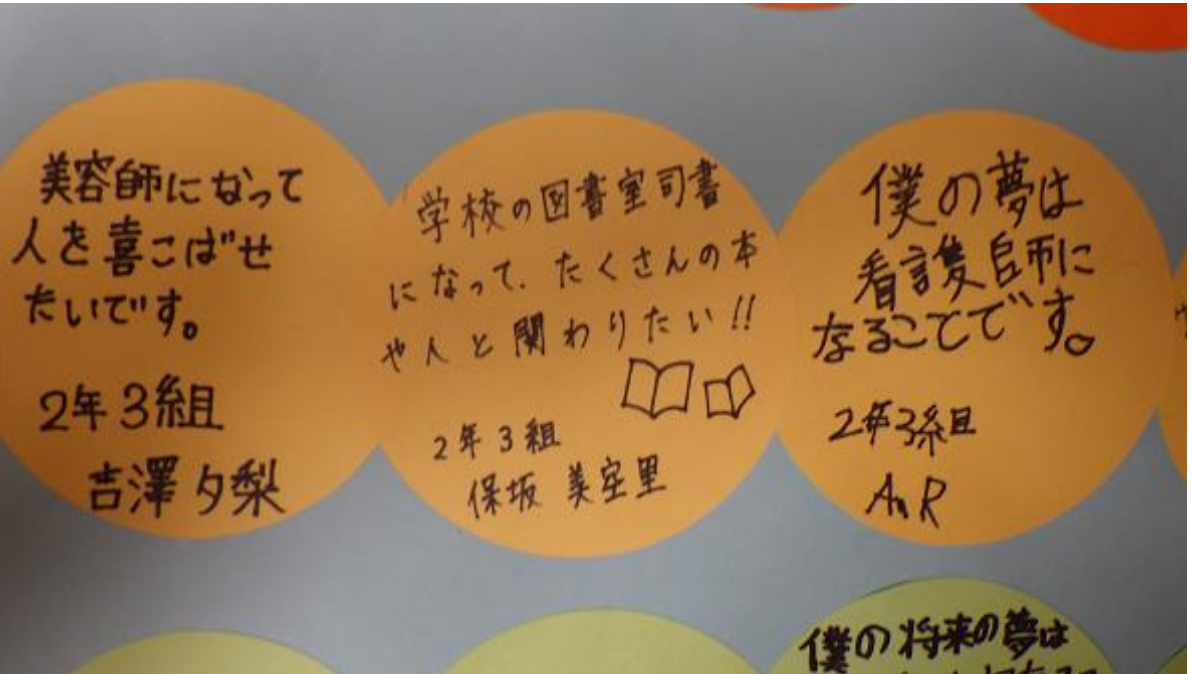 美容師になって
人を喜こばせ
たいです。
2年3組
吉澤夕梨
学校の図書室司書
になって、たくさんの本
や人と関わりたい!!
2年3組
保坂 美宝里
僕の夢は
看護師に
なることです。
2年3組
AnR
僕の将来の夢は